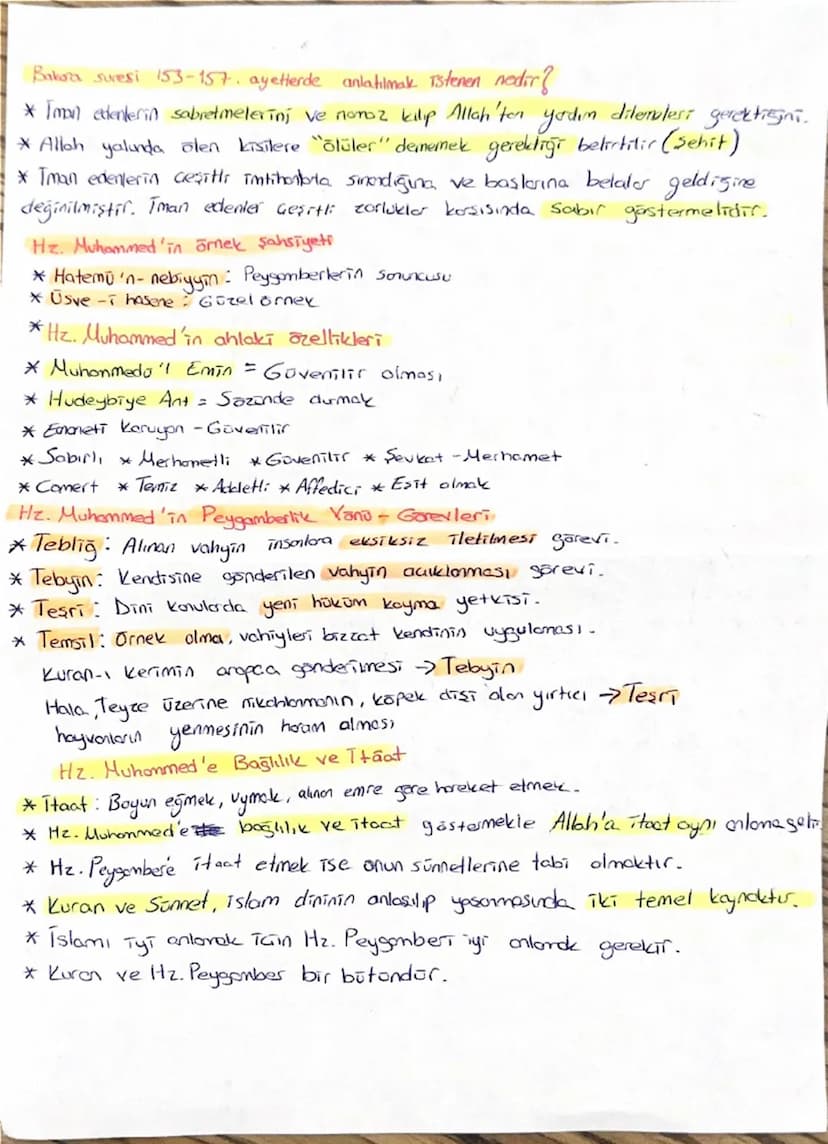 Bakara suresi 153-157. ayetlerde anlatılmak istenen nedir?
* İman edenlerin sabretmelerini ve namaz kılıp Allah'tan yardım dilemeleri gerektiğini.
* Allah yolunda ölen kişilere "ölüler" dememek gerektiği belirtilir (Şehit)
* İman edenlerin çeşitli imtihanlarla sınandığına ve başlarına belalar geldiğine
değinilmiştir. İman edenler çeşitli zorluklar karşısında sabır göstermelidir.
Hz. Muhammed'in örnek şahsiyeti
* Hatemü'n-nebiyyin: Peygamberlerin sonuncusu
* Üsve-i hasene: Güzel örnek
* Hz. Muhammed'in ahlaki özellikleri
* Muhammedü'l Emin = Güvenilir olması
* Hudeybiye Ant = Sözünde durmak
* Emaneti koruyan - Güvenilir
* Sabırlı * Merhametli * Güvenilir * Şevkat - Merhamet
* Cömert * Temiz * Adaletli * Affedici * Eşit olmak
Hz. Muhammed'in Peygamberlik Yönü - Görevleri
* Tebliğ: Alınan vahyin insanlara eksiksiz iletilmesi görevi.
* Tebyin: Kendisine gönderilen vahyin açıklanması görevi.
* Teşri: Dini konularda yeni hüküm koyma yetkisi.
* Temsil: Örnek olma, vahiyleri bizzat kendinin uygulaması.
Kuran-ı kerimin arapça gönderilmesi → Tebyin
Hala, Teyze üzerine nikahlanmanın, köpek dişi olan yırtıcı → Teşri
hayvanların yenmesinin haram olması
Hz. Muhammed'e Bağlılık ve İtâat
* İtaat: Boyun eğmek, uymak, alınan emre göre hareket etmek.
* Hz. Muhammed'e bağlılık ve itaat göstermekle Allah'a itaat aynı anlama gelir.
* Hz. Peygamber'e itaat etmek ise onun sünnetlerine tabi olmaktır.
* Kuran ve Sünnet, İslam dininin anlaşılıp yaşanmasında iki temel kaynaktır.
* İslamı iyi anlamak için Hz. Peygamberi iyi anlamak gerekir.
* Kuran ve Hz. Peygamber bir bütündür.